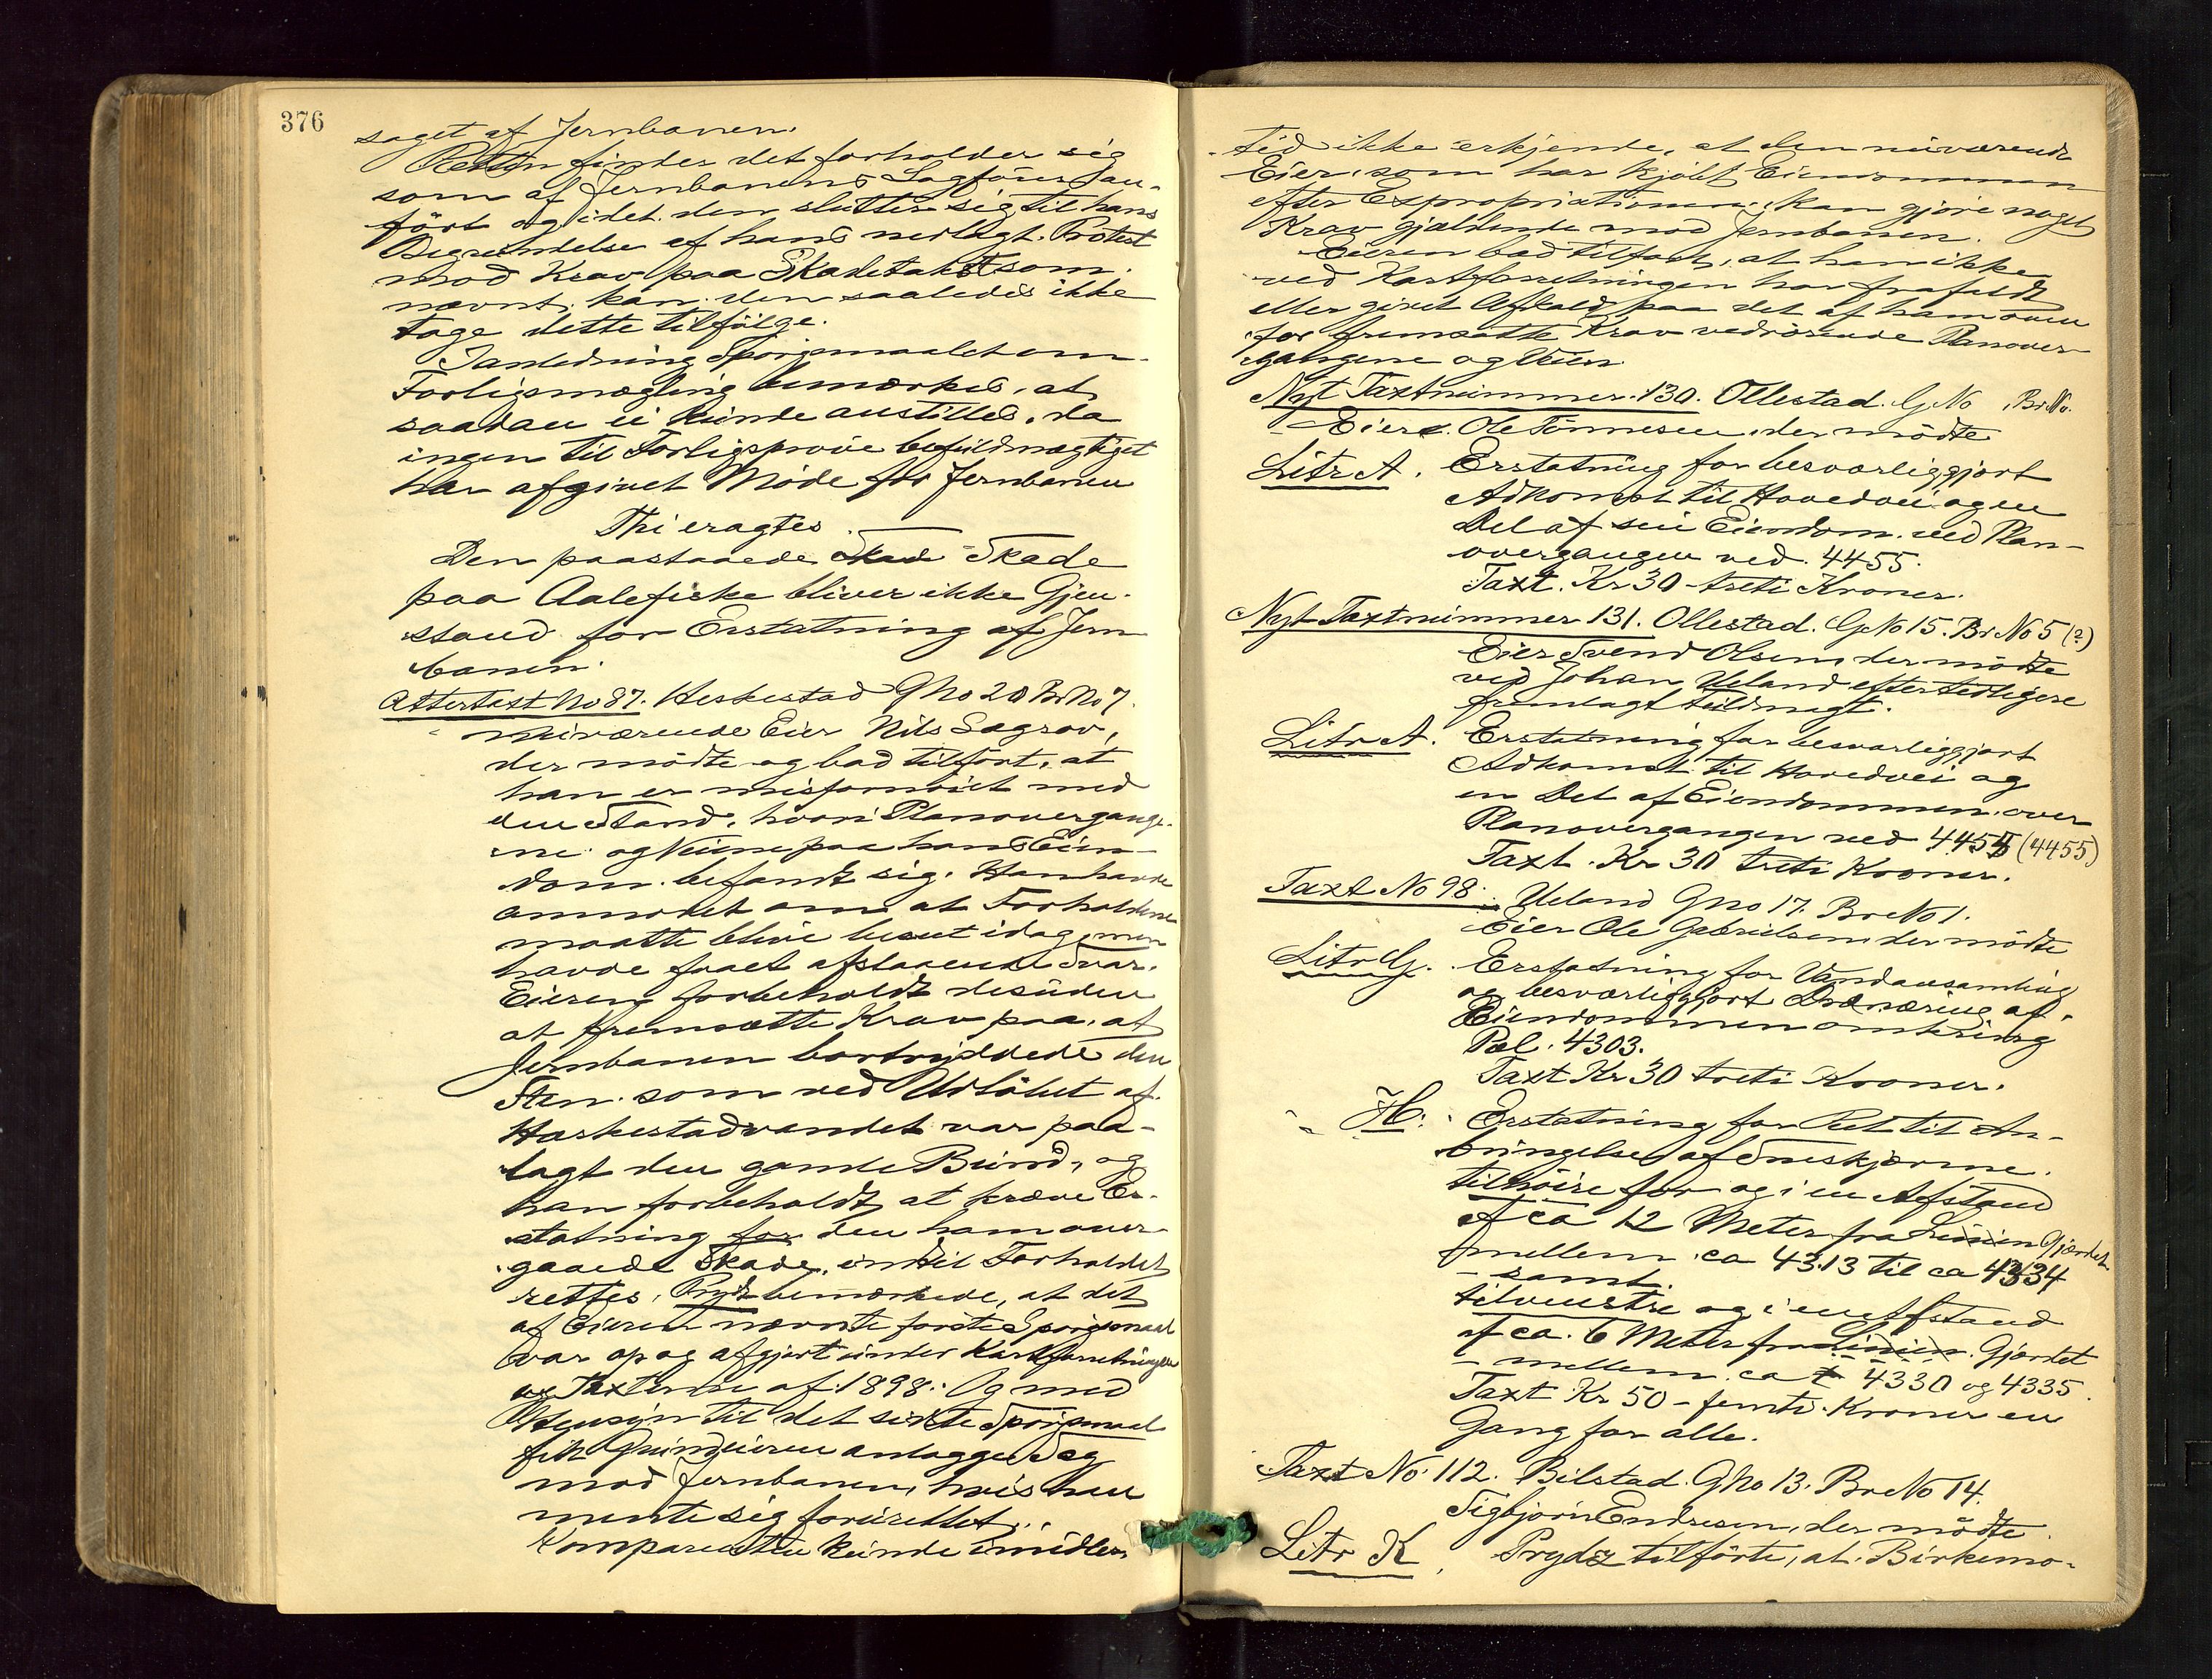 376
saget af Jernbanen.
Retten finder det forholder sig
som af Jernbanens Sagförer an-
fört og idet den slutter sig til hans
Begrundelse af hans nedlagt. Protest
mod Krav paa Skadetakst som
nævnt, kan den saaledes ikke
tage dette tilfölge.
I anledning Spörgsmaalet om
Forligsmægling bemærkes, at
saadan ei kunde anstilles, da
ingen til Forligspröve befuldmægtiget
har afgivet Möde for Jernbanen
Thi eragtes
Den paastaaede Skad Skade
paa Aalefiske bliver ikke Gjen-
stand for Erstatning af Jern
banen.
Attertaxt No 87. Heskestad G No 20 Br No 7.
nuværende Eier Nils Sagrov,
der mödte og bad tilfört, at
han er misfornöiet med
den Stand, hvori Planovergange-
ne og Veiene paa hans Eien-
dom befandt sig. Han havde
anmodet om at Forholdene
maatte blive beseet idag, men
havde faaet afslaaende Svar.
Eieren forbeholdt desuden
at fremsætte Krav paa, at
Jernbanen bortryddede den
Sten som ved Udlöbet af
Heskestadvandet var paa-
lagt den gamle Bund, og
han forbeholdt at kræve Er-
statning for den ham over-
gaaede Skade, indtil Forholdet
rettes. Prydz bemærkede, at det
af Eieren nævnte förste Spörgsmaal
var op og afgjort under Kartforretningen
og Taxterne af 1898. Og med
Hensyn til det sidste Spörgsmaal
fik Grundeieren anlægge Sag
mod Jernbanen, hvis han
mente sig forurettet.
Komparenten kunde imidler
tid ikke erkjende, at den nuværende
Eier, som har kjöbt Eiendommen
efter Expropriationen, kan gjöre noget
Krav gjældende mod Jernbanen.
Eieren bad tilfört, at han ikke
ved Kartforretningen har frafaldt
eller givet Afkald paa det af ham oven
for fremsatte Krav vedrörende Planover-
gangene og Veien
Nyt Taxtnummer 130. Ollestad. G No , Br No.
Eier. Ole Tönnesen, der mödte
Litr A. Erstatning for besværliggjort
Adkomst til Hovedvei og en
Del af sin Eiendom ved Plan-
overgangen ved 4455.
Taxt. Kr 30 - treti Kroner.
Nyt Taxtnummer 131. Ollestad. G No 15. Br No 5 (?)
Eier Svend Olsen, der mödte
ved Johan Ueland efter tidligere
fremlagt fuldmagt.
Litr A. Erstatning for besværliggjort
Adkomst til Hovedvei og
en Del af Eiendommen over
Planovergangen ved 4455 (4455)
Taxt. Kr 30 treti Kroner.
Taxt No 98. Ueland G No 17. Br No 1.
Eier Ole Gabrielsen, der mödte
Litr G. Erstatning for Vandansamling
og besværliggjort Drænæring af
Eiendommen omkring
Pæl. 4303.
Taxt Kr 30 treti Kroner.
" H. Erstatning for Ret til An-
bringelse af Sneskjærme
tilhöire for og i en Afstand
af ca 12 Meter fra Linien Gjærdet
mellem ca 4313 til ca 4334
samt
tilvenstre og i en Afstand
af ca. 6 Meter fra Linien Gjærdet
mellem ca 4330 og 4335.
Taxt Kr 50 - femti Kroner en
Gang for alle.
Taxt No 112. Bilstad. G No 13. Br No 14.
Sigbjörn Endresen, der mödte
Litr K, Prydz tilförte, at Birkemo-